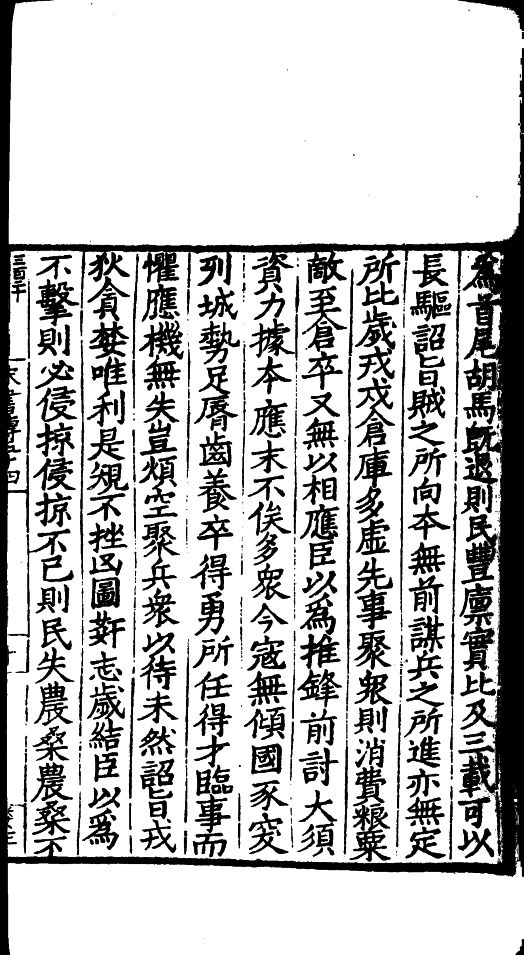 為首尾胡馬旣退則民豐廩實比及三載可以
長驅詔旨賊之所向本無前謀兵之所進亦無定
所比歲戎戍倉庫多虛先事聚衆則消費粮粟
敵至倉卒又無以相應臣以爲推鋒前討大須
資力據本應末不俟多衆今宼無傾國豕突
列城勢足脣齒養卒得勇所任得才臨事而
懼應機無失豈煩空聚兵衆以待未然詔旨戎
狄貪婪唯利是䂓不挫凶圖姧志歲結臣以爲
不擊則必侵掠侵掠不已則民失農桑農桑不
三百二十
宋書傳二十四